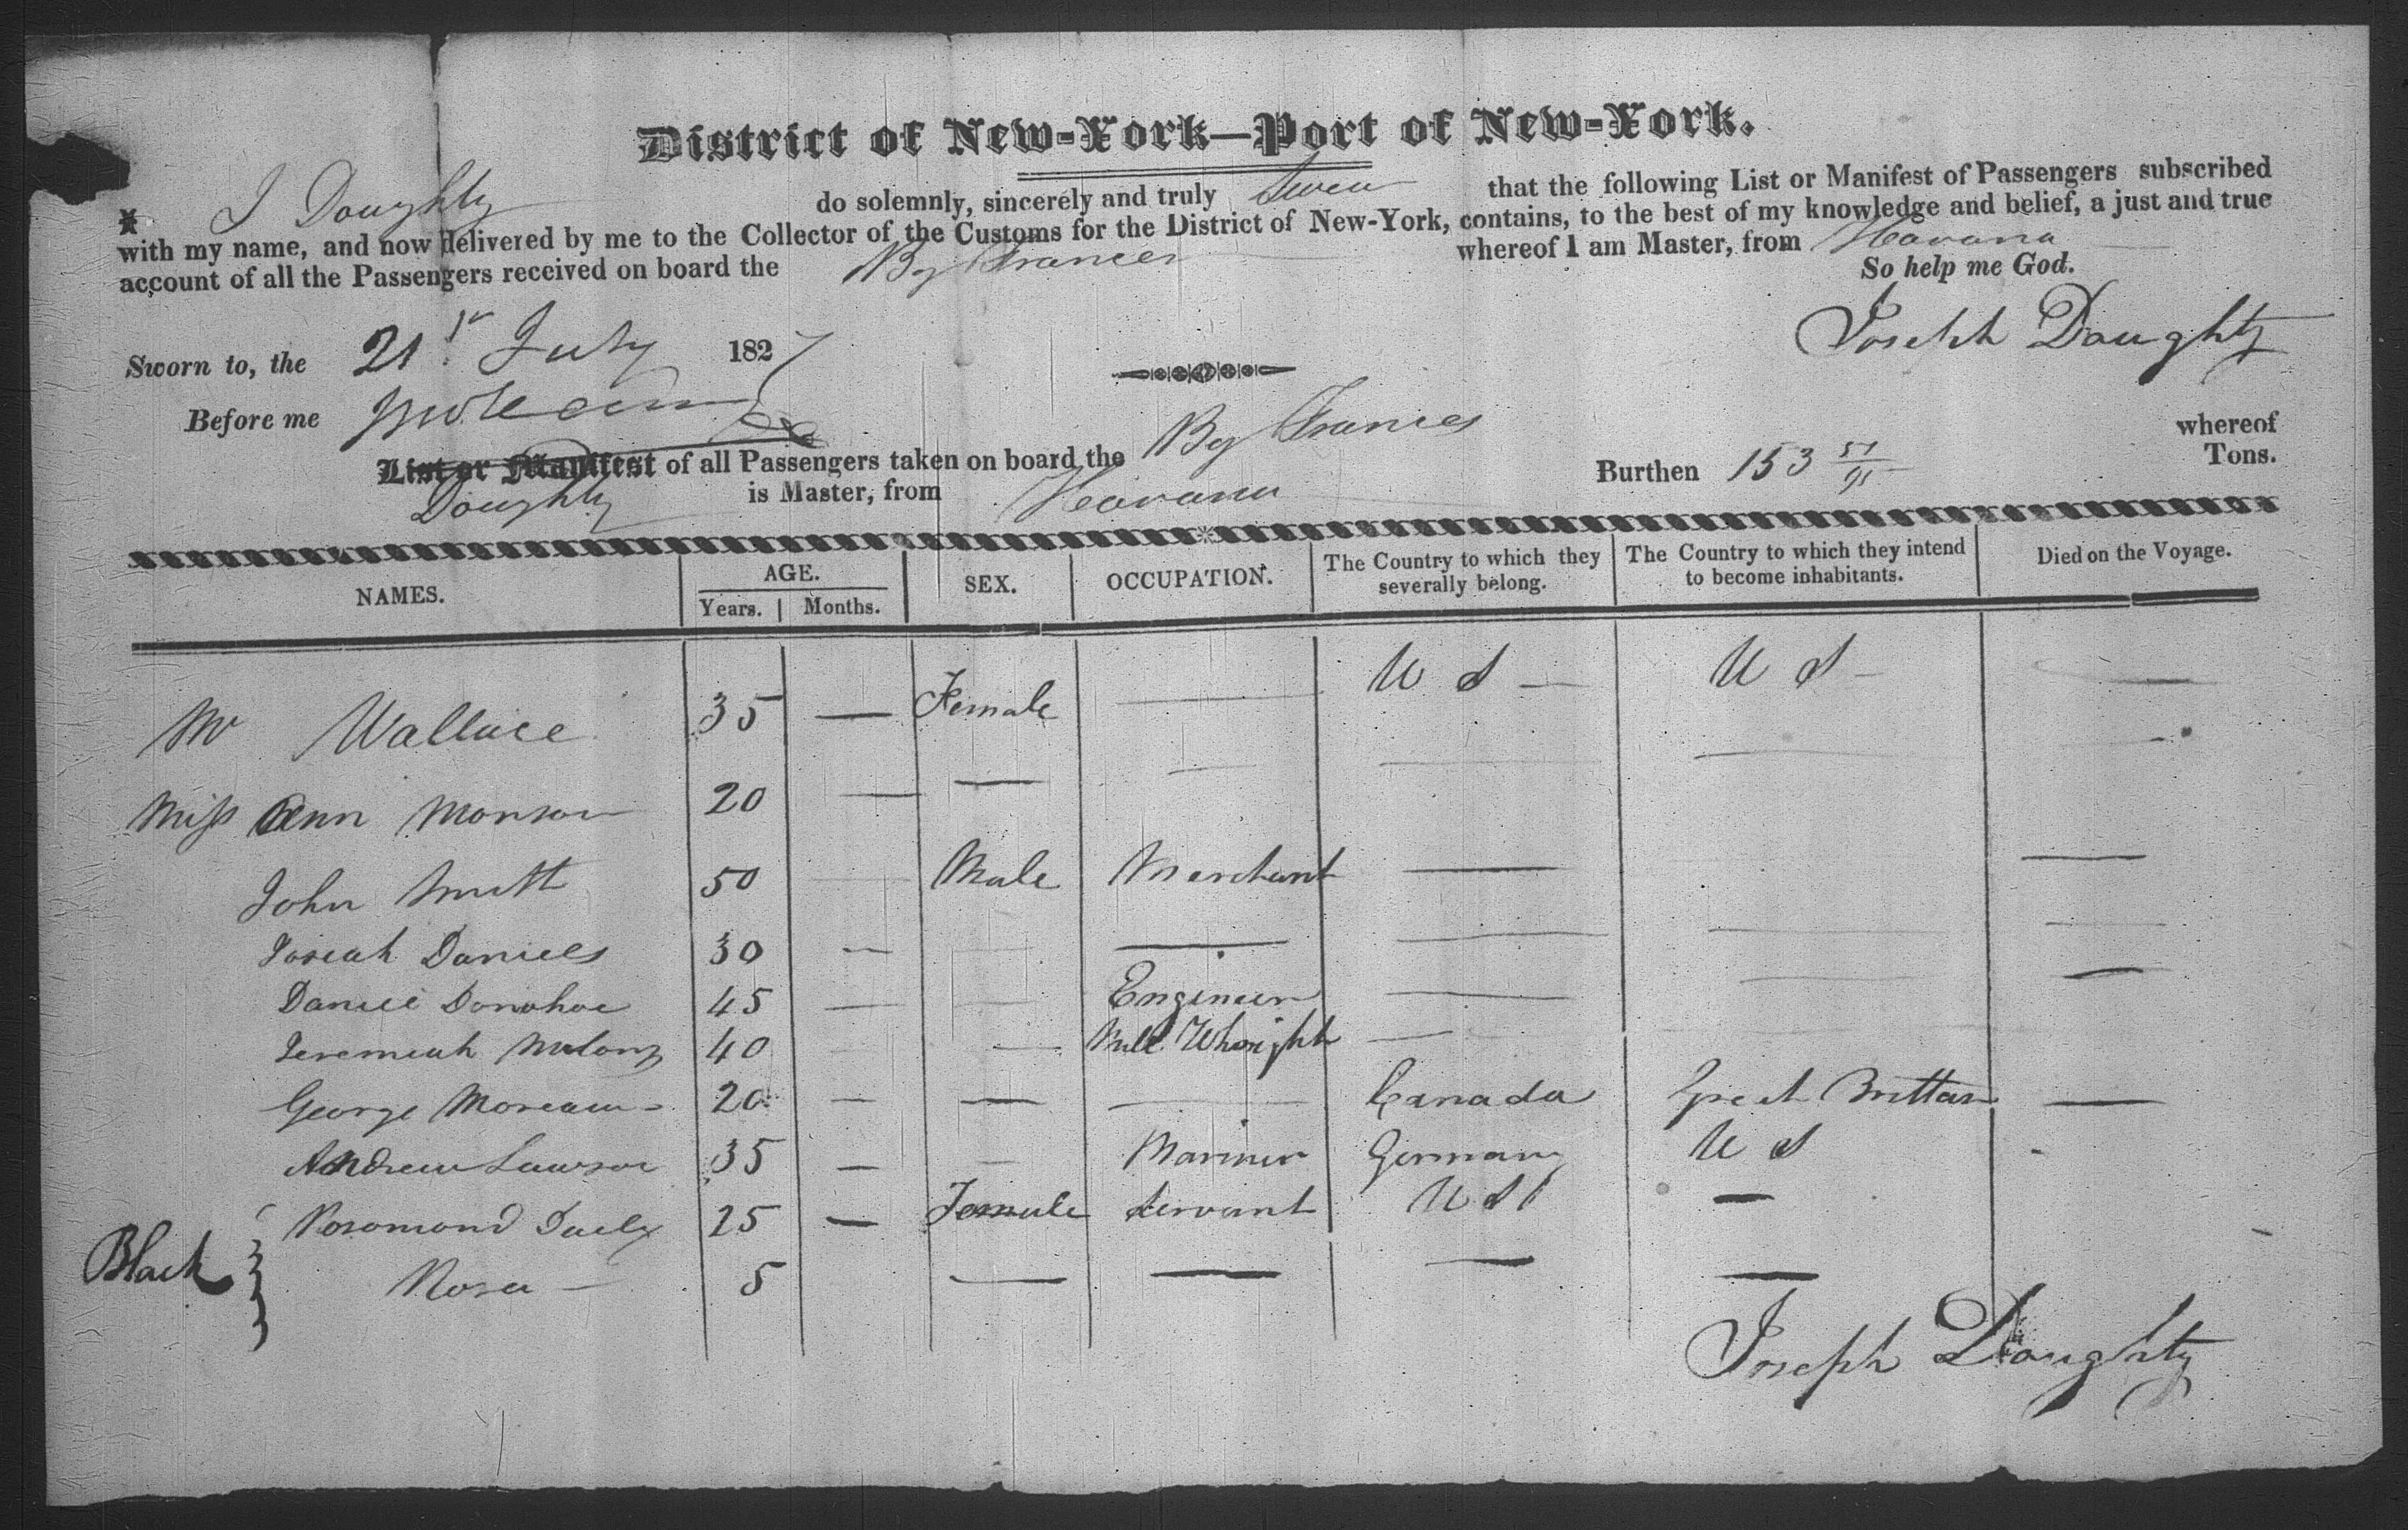 District of New-York—Port of New-York.
I J Doughty do solemnly, sincerely and truly Swear that the following List or Manifest of Passengers subscribed
with my name, and now delivered by me to the Collector of the Customs for the District of New-York, contains, to the best of my knowledge and belief, a just and true
account of all the Passengers received on board the Bg Frances whereof I am Master, from Havana
So help me God.
Sworn to, the 21st July 1827
Joseph Doughty
Before me
List or Manifest of all Passengers taken on board the Bg Frances whereof
Doughty is Master, from Havana Burthen 153 51/95 Tons.
NAMES. AGE. Years. Months. SEX. OCCUPATION. The Country to which they severally belong. The Country to which they intend to become inhabitants. Died on the Voyage.
Wallace 35 — Female — U S — U S — —
Miss Ann Monson 20 — — — — — —
John Smith 50 — Male Merchant — —
Josiah Daniels 30 — — — — — —
Daniel Donohoe 45 — — Engineer — — —
Jeremiah 40 — — Mill Whright —
George Moreau - 20 — — — Canada Great Brittan —
Andrew Lawson 35 — — Mariner Germany U S -
Black Rosomond 25 — Female Servant U S —
Rosa — 5 — — — —
Joseph Doughty